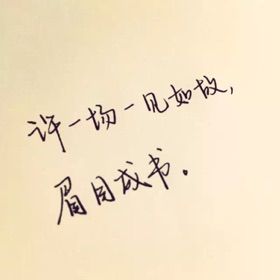 许一场一见如故，
眉目成书。